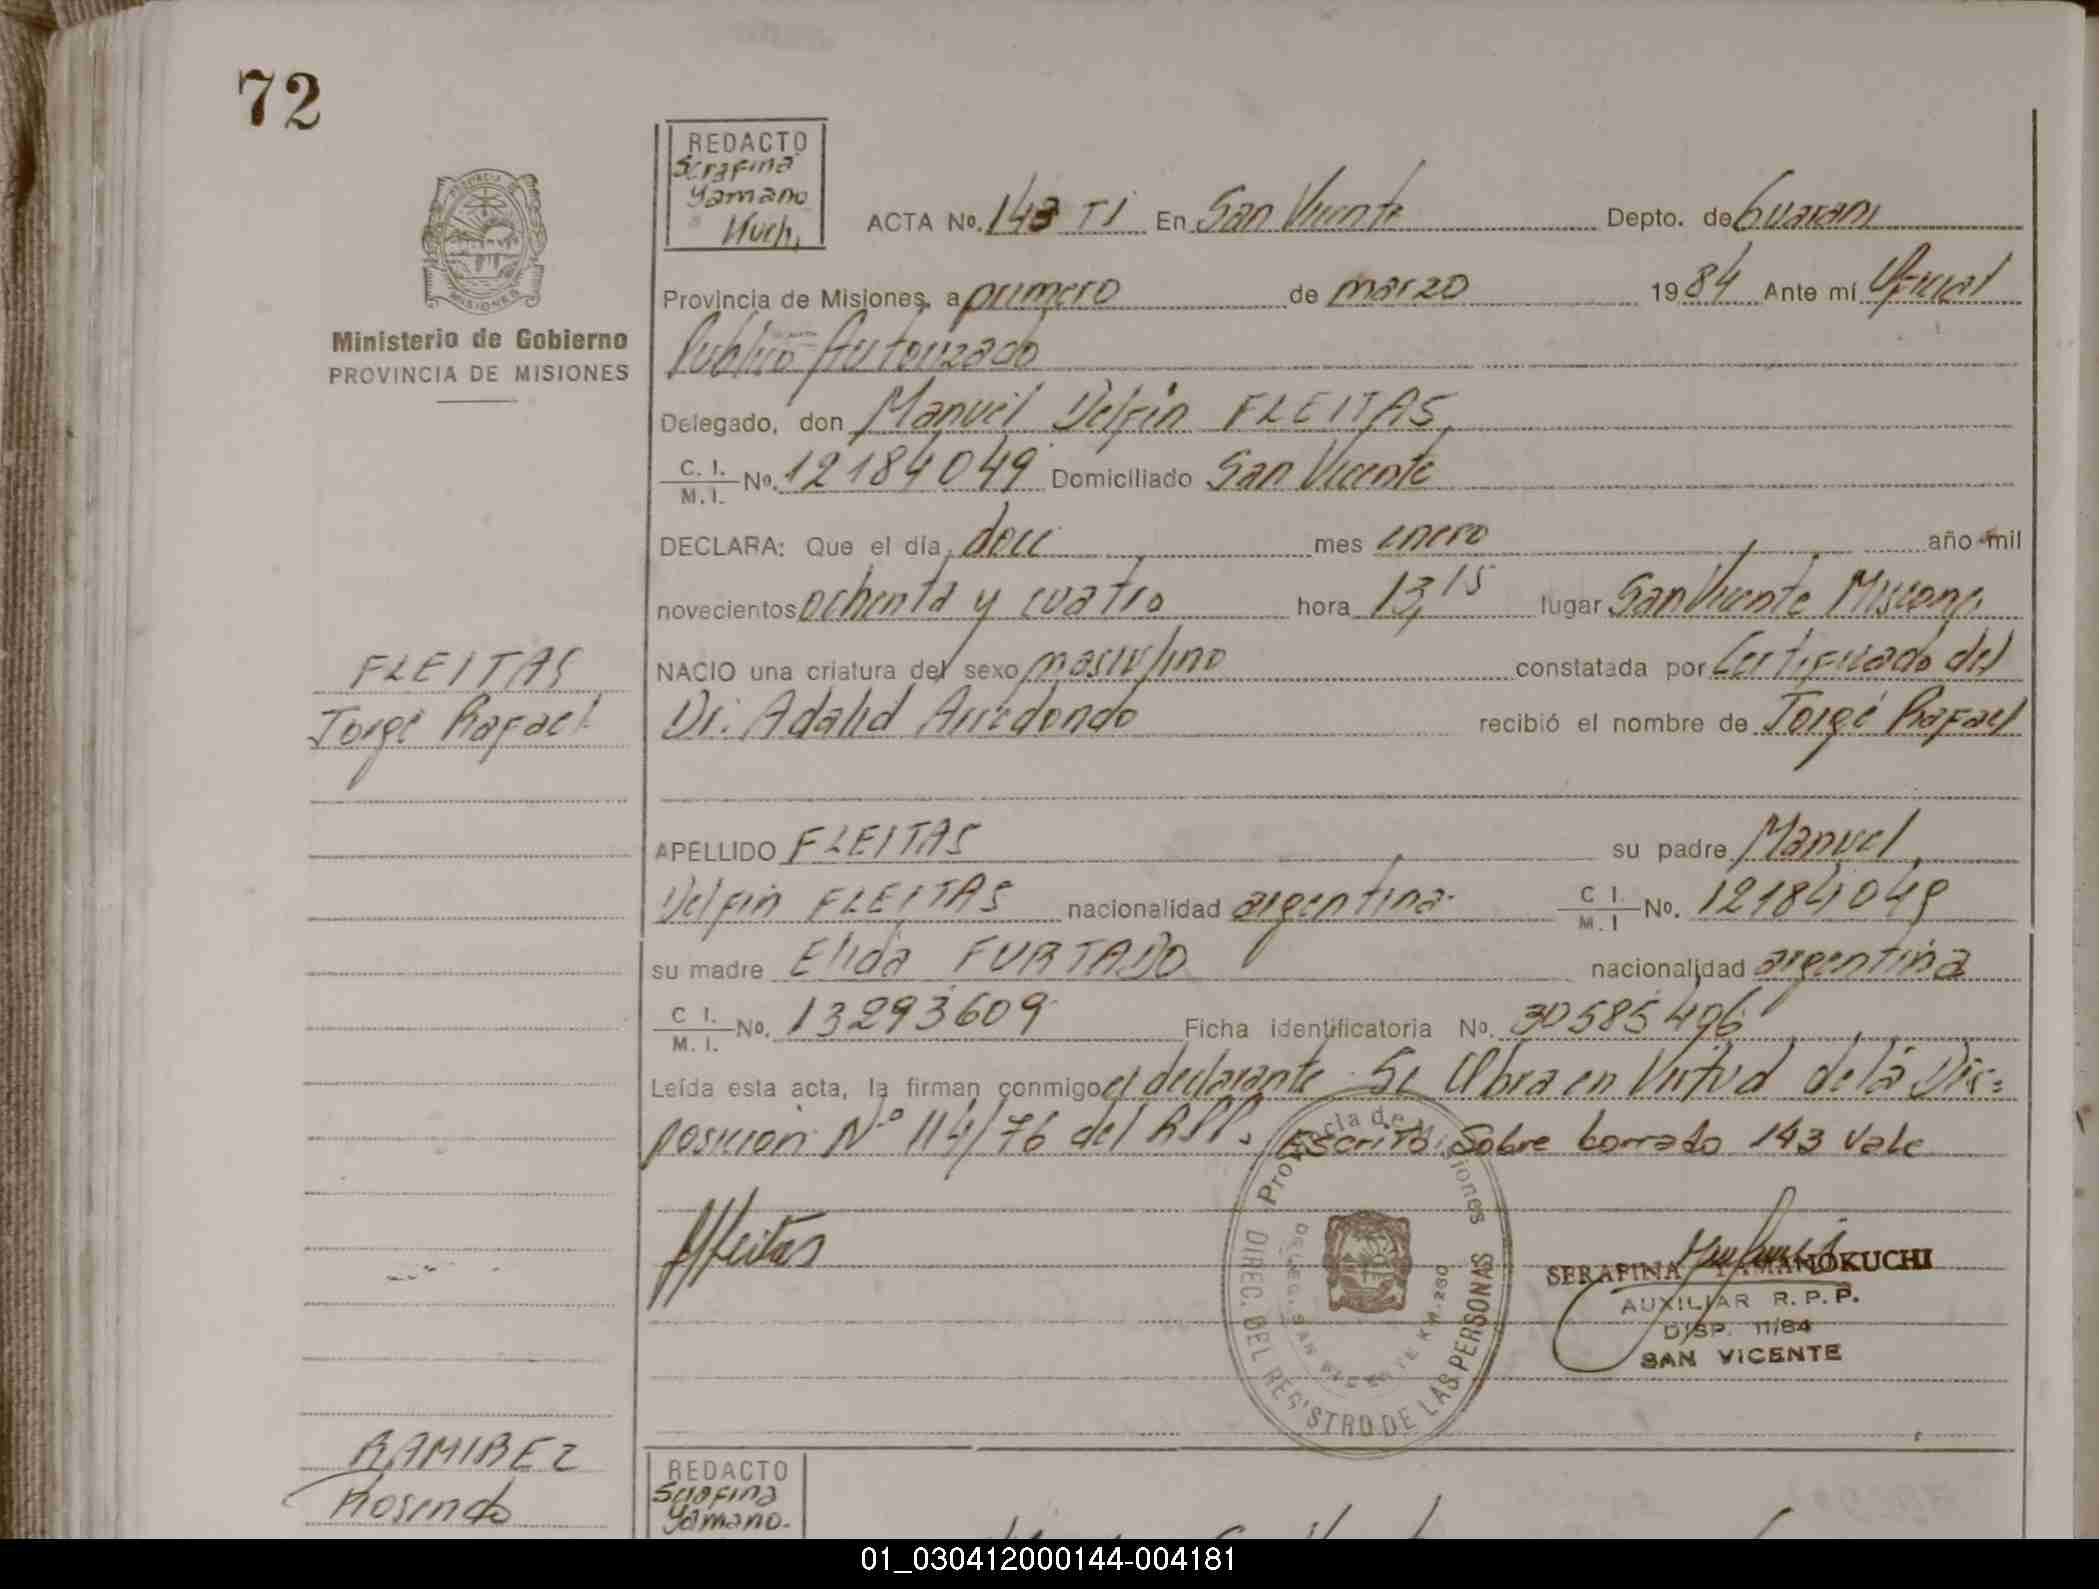 72
REDACTO
Serafina
Yamano
Kuchi
ACTA No. 143 TI En San Vicente Depto. de Guarani
Provincia de Misiones, a primero de marzo 1984 Ante mí Oficial
Publico Autorizado
Ministerio de Gobierno
PROVINCIA DE MISIONES
Delegado, don Manuel Delfin FLEITAS,
C. I. / M. I. No. 12184049 Domiciliado San Vicente
DECLARA: Que el día doce mes enero año mil
novecientos ochenta y cuatro hora 13,15 lugar San Vicente Misiones
NACIO una criatura del sexo masculino constatada por Certificado del
Dr. Adalid Arredondo recibió el nombre de Jorge Rafael
FLEITAS
Jorge Rafael
APELLIDO FLEITAS su padre Manuel
Delfin FLEITAS nacionalidad argentina C I. / M. I No. 12184049
su madre Elida FURTADO nacionalidad argentina
C I. / M. I. No. 13293609 Ficha identificatoria No. 30585496
Leída esta acta, la firman conmigo el declarante. Se Labra en Virtud de la Dis=
posicion Nº 114/76 del RPP. Escrito Sobre borrado 143 Vale
Provincia de Misiones
DIREC. DEL REGISTRO DE LAS PERSONAS
DELEG. SAN VICENTE KM. 260
SERAFINA YAMANOKUCHI
AUXILIAR R. P. P.
DISP. 11/84
SAN VICENTE
RAMIREZ
Rosendo
REDACTO
Serafina
Yamano-
01_030412000144-004181